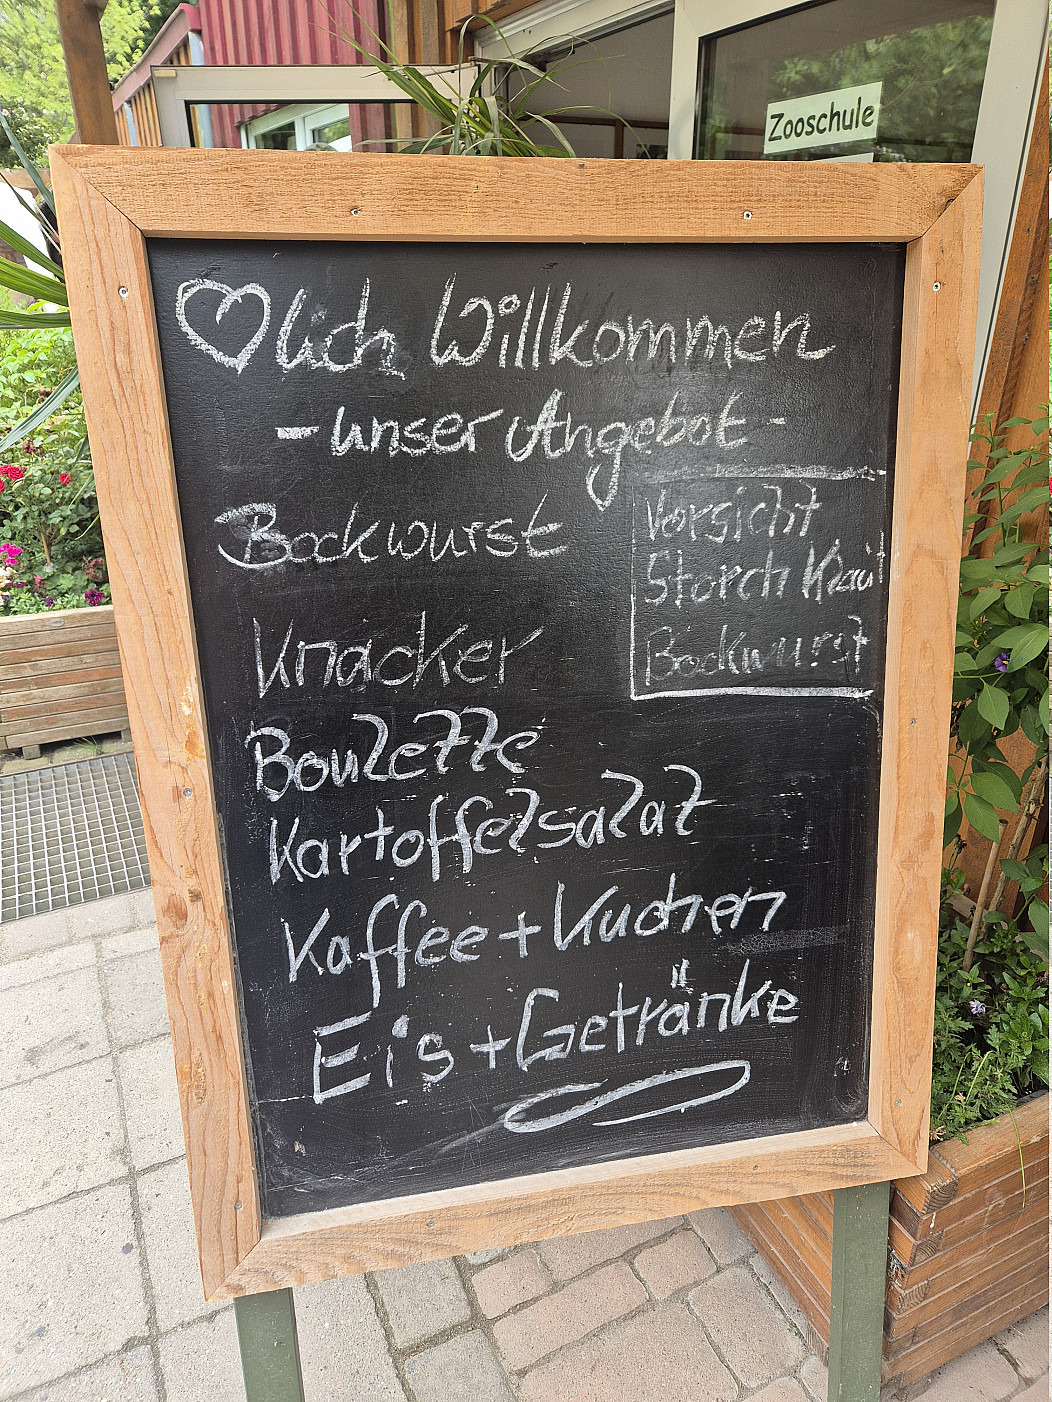 Zooschule
♡lich Willkommen
- unser Angebot -
Bockwurst
Vorsicht
Storch klaut
Bockwurst
Knacker
Boulette
Kartoffelsalat
Kaffee + Kuchen
Eis + Getränke